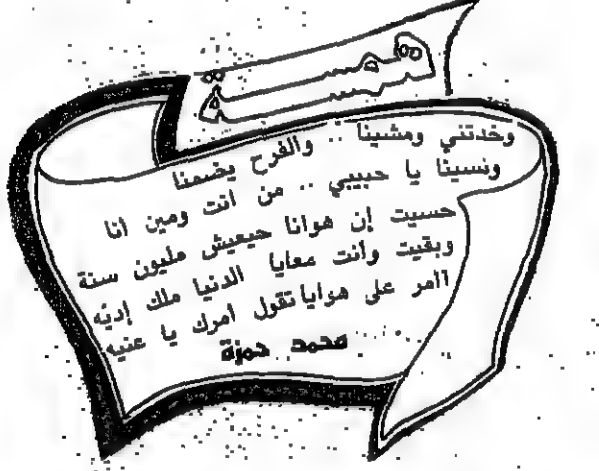 همسة
وخدتني ومشينا .. والفرح يضمنا
ونسينا يا حبيبي .. من انت ومين انا
حسيت إن هوانا حيعيش مليون سنة
وبقيت وانت معايا الدنيا ملك إديّه
أامر على هوايا تقول أمرك يا عنيه
محمد حمزة